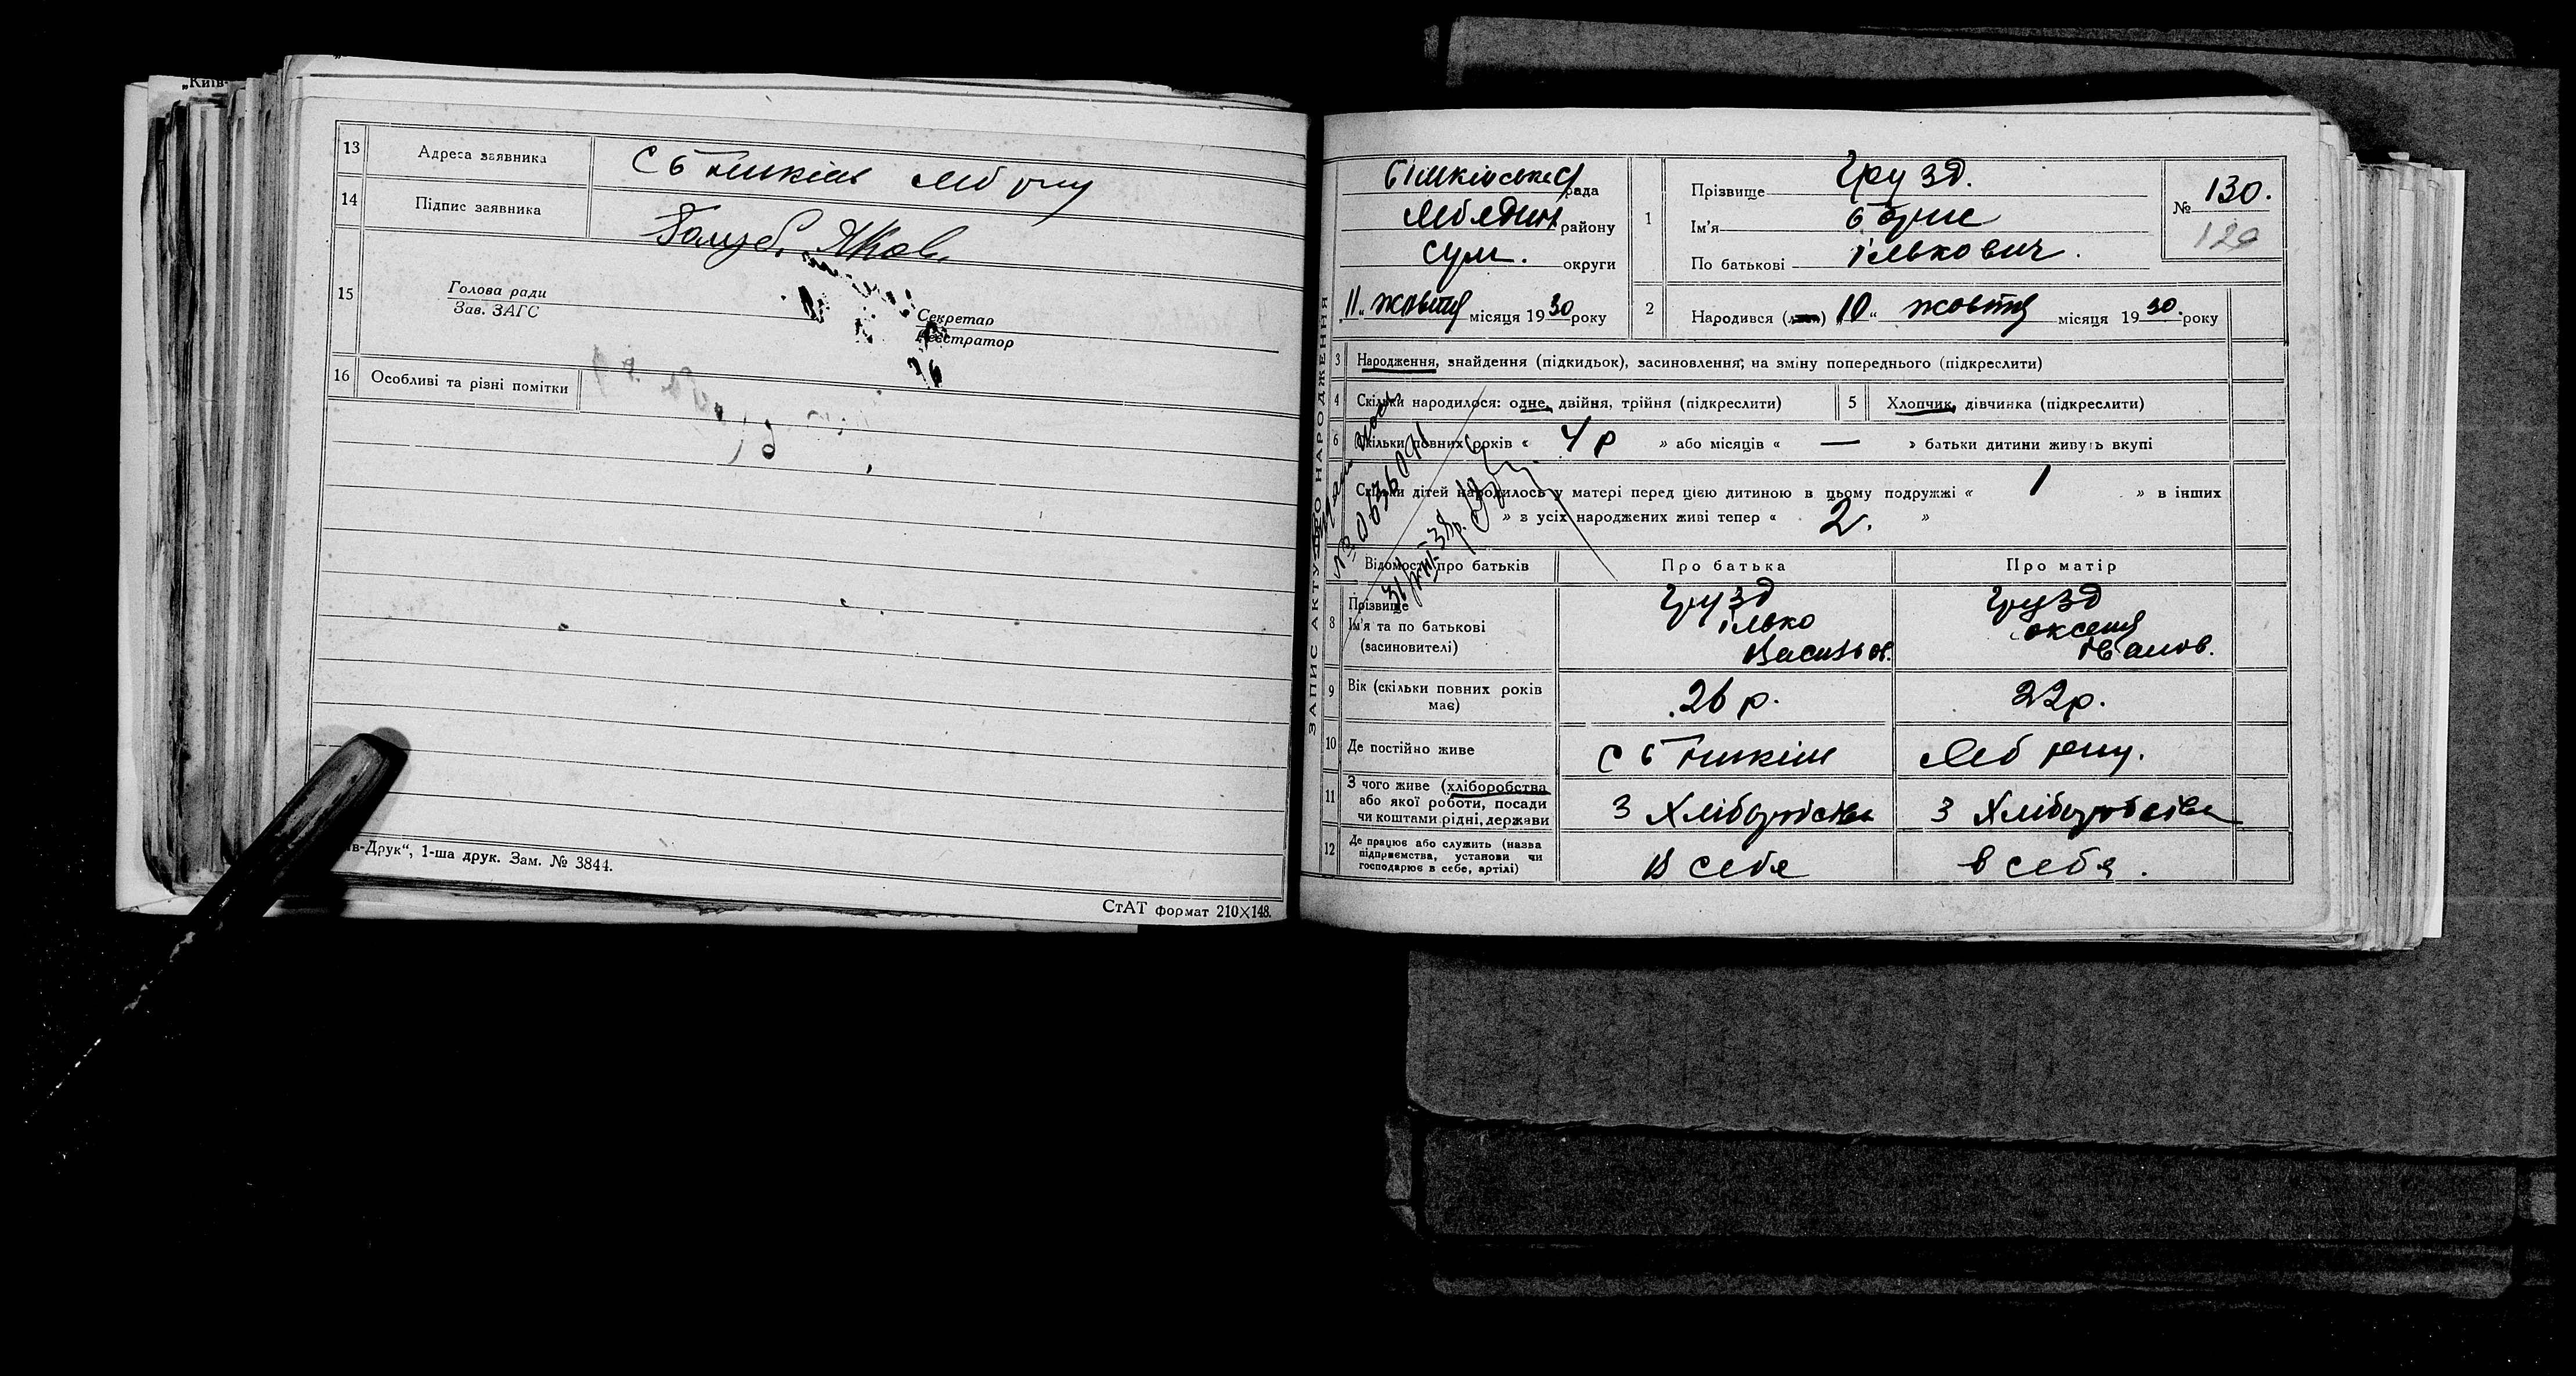 „Київ-
13 Адреса заявника С Бишкінь Леб рну
14 Підпис заявника Яков
15 Голова ради
Зав. ЗАГС
Секретар
Реєстратор
16 Особливі та різні помітки
ів-Друк“, 1-ша друк. Зам. № 3844.
СтАТ формат 210×148.
ЗАПИС АКТУ ПРО НАРОДЖЕННЯ
рада
Лебедин району
Сум. округи
„11„ жовтня місяця 1930 року
1 Прізвище Грузд.
Ім’я Борис
По батькові Ількович.
№ 130.
120
2 Народився (лась) „10“ жовтня місяця 1930. року
3 Народження, знайдення (підкидьок), засиновлення; на зміну попереднього (підкреслити)
4 Скільки народилося: одне, двійня, трійня (підкреслити)
5 Хлопчик, дівчинка (підкреслити)
6 Скільки повних років « 4 р » або місяців « — » батьки дитини живуть вкупі
Скільки дітей народилось у матері перед цією дитиною в цьому подружжі « 1 » в інших
» з усіх народжених живі тепер « 2. »
Відомості про батьків Про батька Про матір
8 Прізвище
Ім’я та по батькові
(засиновителі)
Грузд
Ілько
Васильов.
Грузд
Оксеня
Іванов.
9 Вік (скільки повних років
має)
26 р. 22р.
10 Де постійно живе С Бишкінь Леб рну.
11 З чого живе (хліборобства
або якої роботи, посади
чи коштами рідні, держави
З Хліборобства З Хліборобства
12 Де працює або служить (назва
підприємства, установи чи
господарює в себе, артілі)
В себя в себя.